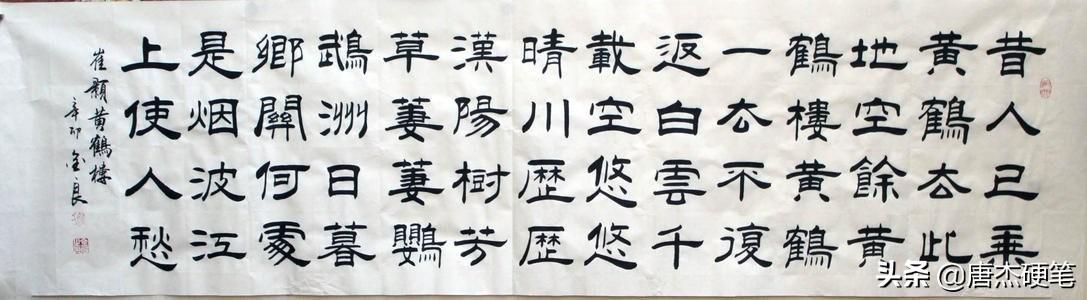 昔人已乘
黃鶴去此
地空餘黃
鶴樓黃鶴
一去不復
返白雲千
載空悠悠
晴川歴歴
漢陽樹芳
草萋萋鸚
鵡洲日暮
鄉關何處
是烟波江
上使人愁
崔顥黃鶴樓
辛卯金良
头条 @唐杰硬笔